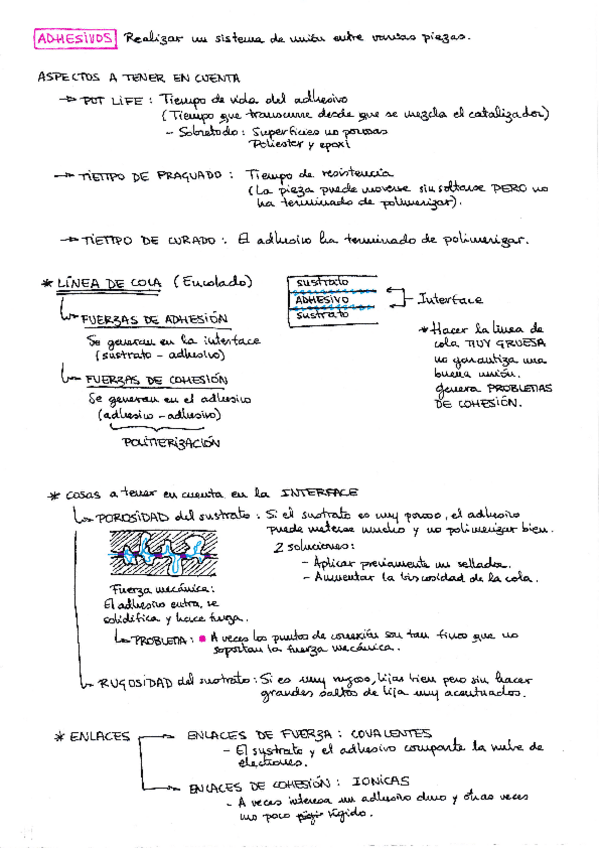 ADHESIVOS Realizar un sistema de unión entre varias piezas.
ASPECTOS A TENER EN CUENTA
→ POT LIFE: Tiempo de vida del adhesivo
(Tiempo que transcurre desde que se mezcla el catalizador)
- Sobretodo: Superficies no porosas
Poliester y epoxi
→ TIEMPO DE FRAGUADO: Tiempo de resistencia
(La pieza puede moverse sin soltarse PERO no
ha terminado de polimerizar).
→ TIEMPO DE CURADO: El adhesivo ha terminado de polimerizar.
* LÍNEA DE COLA (Encolado)
FUERZAS DE ADHESIÓN
Se generan en la interface
(sustrato - adhesivo)
FUERZAS DE COHESIÓN
Se generan en el adhesivo
(adhesivo - adhesivo)
POLIMERIZACIÓN
sustrato
ADHESIVO
sustrato
Interface
* Hacer la línea de
cola MUY GRUESA
no garantiza una
buena unión.
Genera PROBLEMAS
DE COHESIÓN.
* Cosas a tener en cuenta en la INTERFACE
POROSIDAD del sustrato: Si el sustrato es muy poroso, el adhesivo
puede meterse mucho y no polimerizar bien.
2 soluciones:
- Aplicar previamente un sellador.
- Aumentar la viscosidad de la cola.
Fuerza mecánica:
El adhesivo entra, se
solidifica y hace fuerza.
PROBLEMA: A veces los puntos de conexión son tan finos que no
soportan la fuerza mecánica.
RUGOSIDAD del sustrato: Si es muy rugoso, lijas bien pero sin hacer
grandes saltos de lija muy acentuados.
* ENLACES
ENLACES DE FUERZA: COVALENTES
- El systrato y el adhesivo comparte la nube de
electrones.
ENLACES DE COHESIÓN: IONICAS
- A veces interesa un adhesivo duro y otras veces
uno poco rígido.